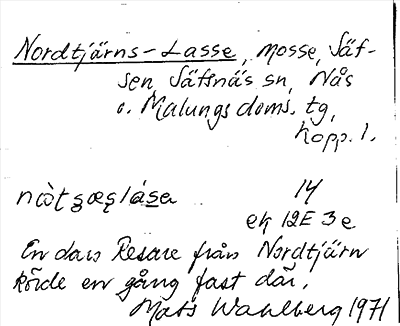 Nordtjärns-Lasse, mosse, Säf-
sen, Säfsnäs sn, Nås
o. Malungs doms. tg,
Kopp. l.
14
ek 12E 3e
En dans Resare från Nordtjärn
körde en gång fast där.
Mats Wahlberg 1971